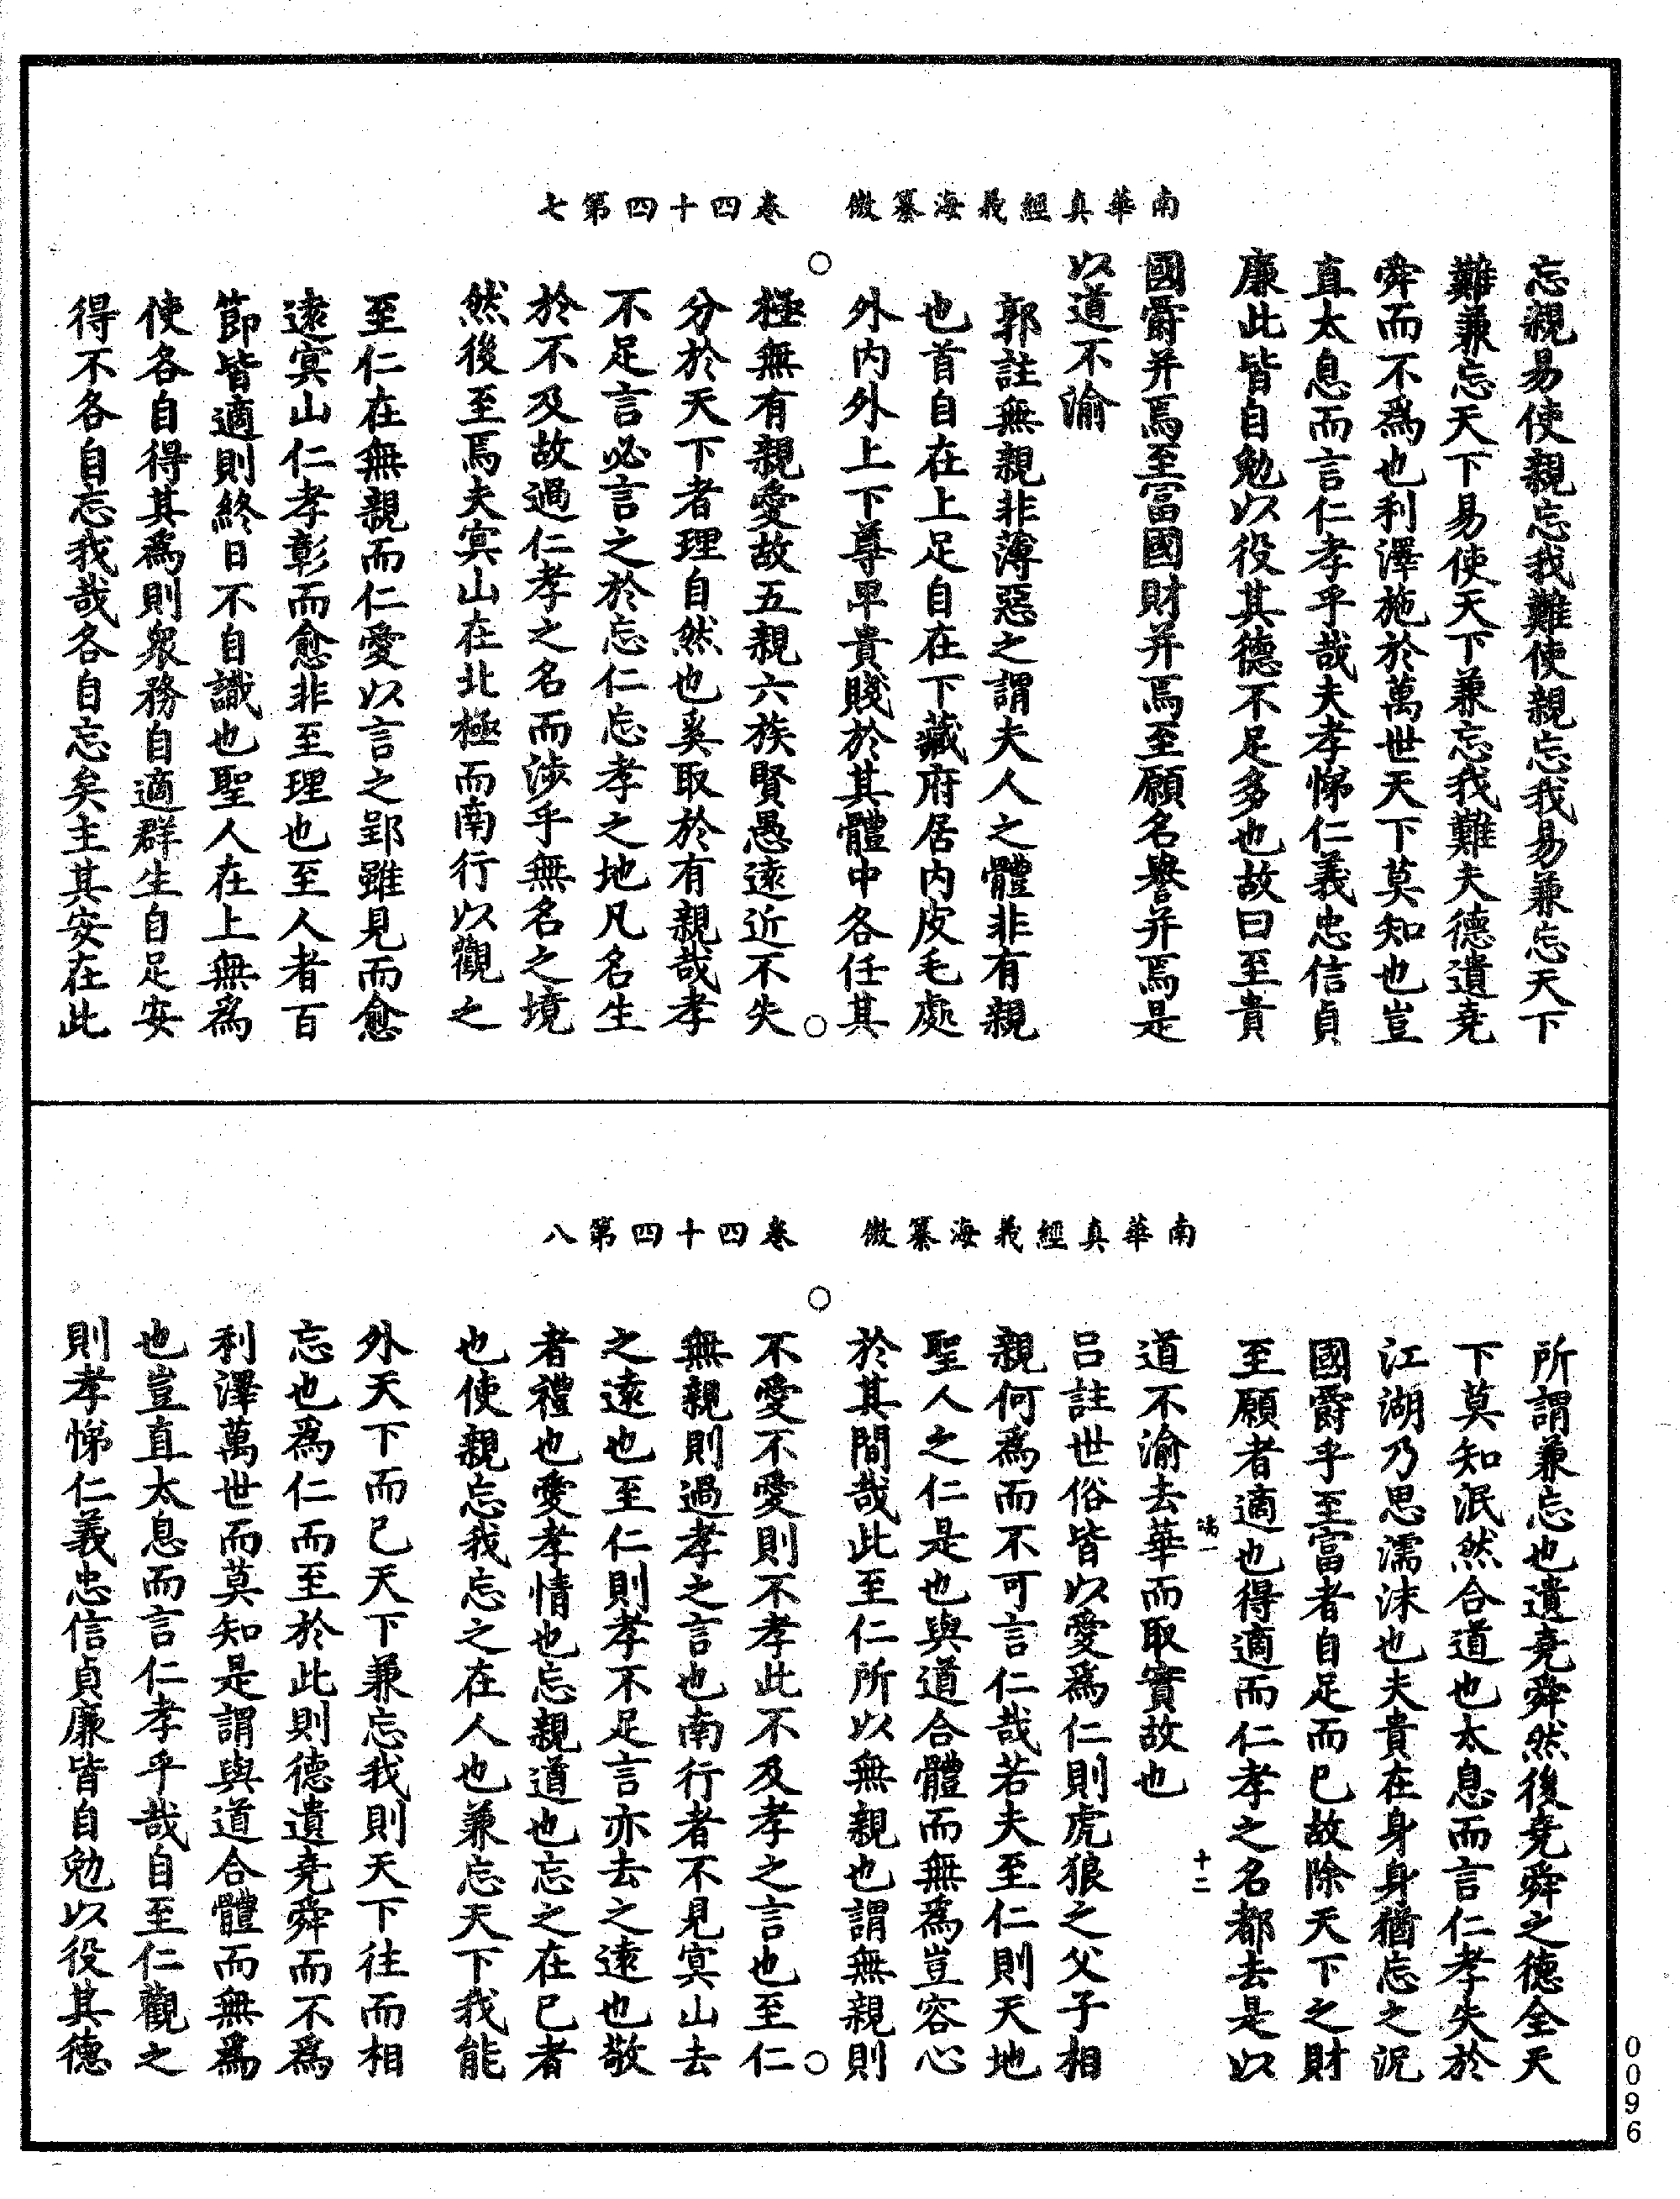 南華真經義海纂微　卷四十四第七
忘親易使親忘我難使親忘我易兼忘天下
難兼忘天下易使天下兼忘我難夫德遺堯
舜而不為也利澤施於萬世天下莫知也豈
直太息而言仁孝乎哉夫孝悌仁義忠信貞
廉此皆自勉以役其德不足多也故曰至貴
國爵并焉至富國財并焉至願名譽并焉是
以道不渝
郭註無親非薄惡之謂夫人之體非有親
也首自在上足自在下藏府居內皮毛處
外內外上下尊卑貴賤於其體中各任其
極無有親愛故五親六族賢愚遠近不失
分於天下者理自然也奚取於有親哉孝
不足言必言之於忘仁忘孝之地凡名生
於不及故過仁孝之名而涉乎無名之境
然後至焉夫冥山在北極而南行以觀之
至仁在無親而仁愛以言之郢雖見而愈
遠冥山仁孝彰而愈非至理也至人者百
節皆適則終日不自識也聖人在上無為
使各自得其為則衆務自適群生自足安
得不各自忘我哉各自忘矣主其安在此
南華真經義海纂微　卷四十四第八
所謂兼忘也遺堯舜然後堯舜之德全天
下莫知泯然合道也太息而言仁孝失於
江湖乃思濡沫也夫貴在身身猶忘之況
國爵乎至富者自足而已故除天下之財
至願者適也得適而仁孝之名都去是以
道不渝去華而取實故也
十二
呂註世俗皆以愛為仁則虎狼之父子相
親何為而不可言仁哉若夫至仁則天地
聖人之仁是也與道合體而無為豈容心
於其間哉此至仁所以無親也謂無親則
不愛不愛則不孝此不及孝之言也至仁
無親則過孝之言也南行者不見冥山去
之遠也至仁則孝不足言亦去之遠也敬
者禮也愛孝情也忘親道也忘之在己者
也使親忘我忘之在人也兼忘天下我能
外天下而已天下兼忘我則天下往而相
忘也為仁而至於此則德遺堯舜而不為
利澤萬世而莫知是謂與道合體而無為
也豈直太息而言仁孝乎哉自至仁觀之
則孝悌仁義忠信貞廉皆自勉以役其德
0096